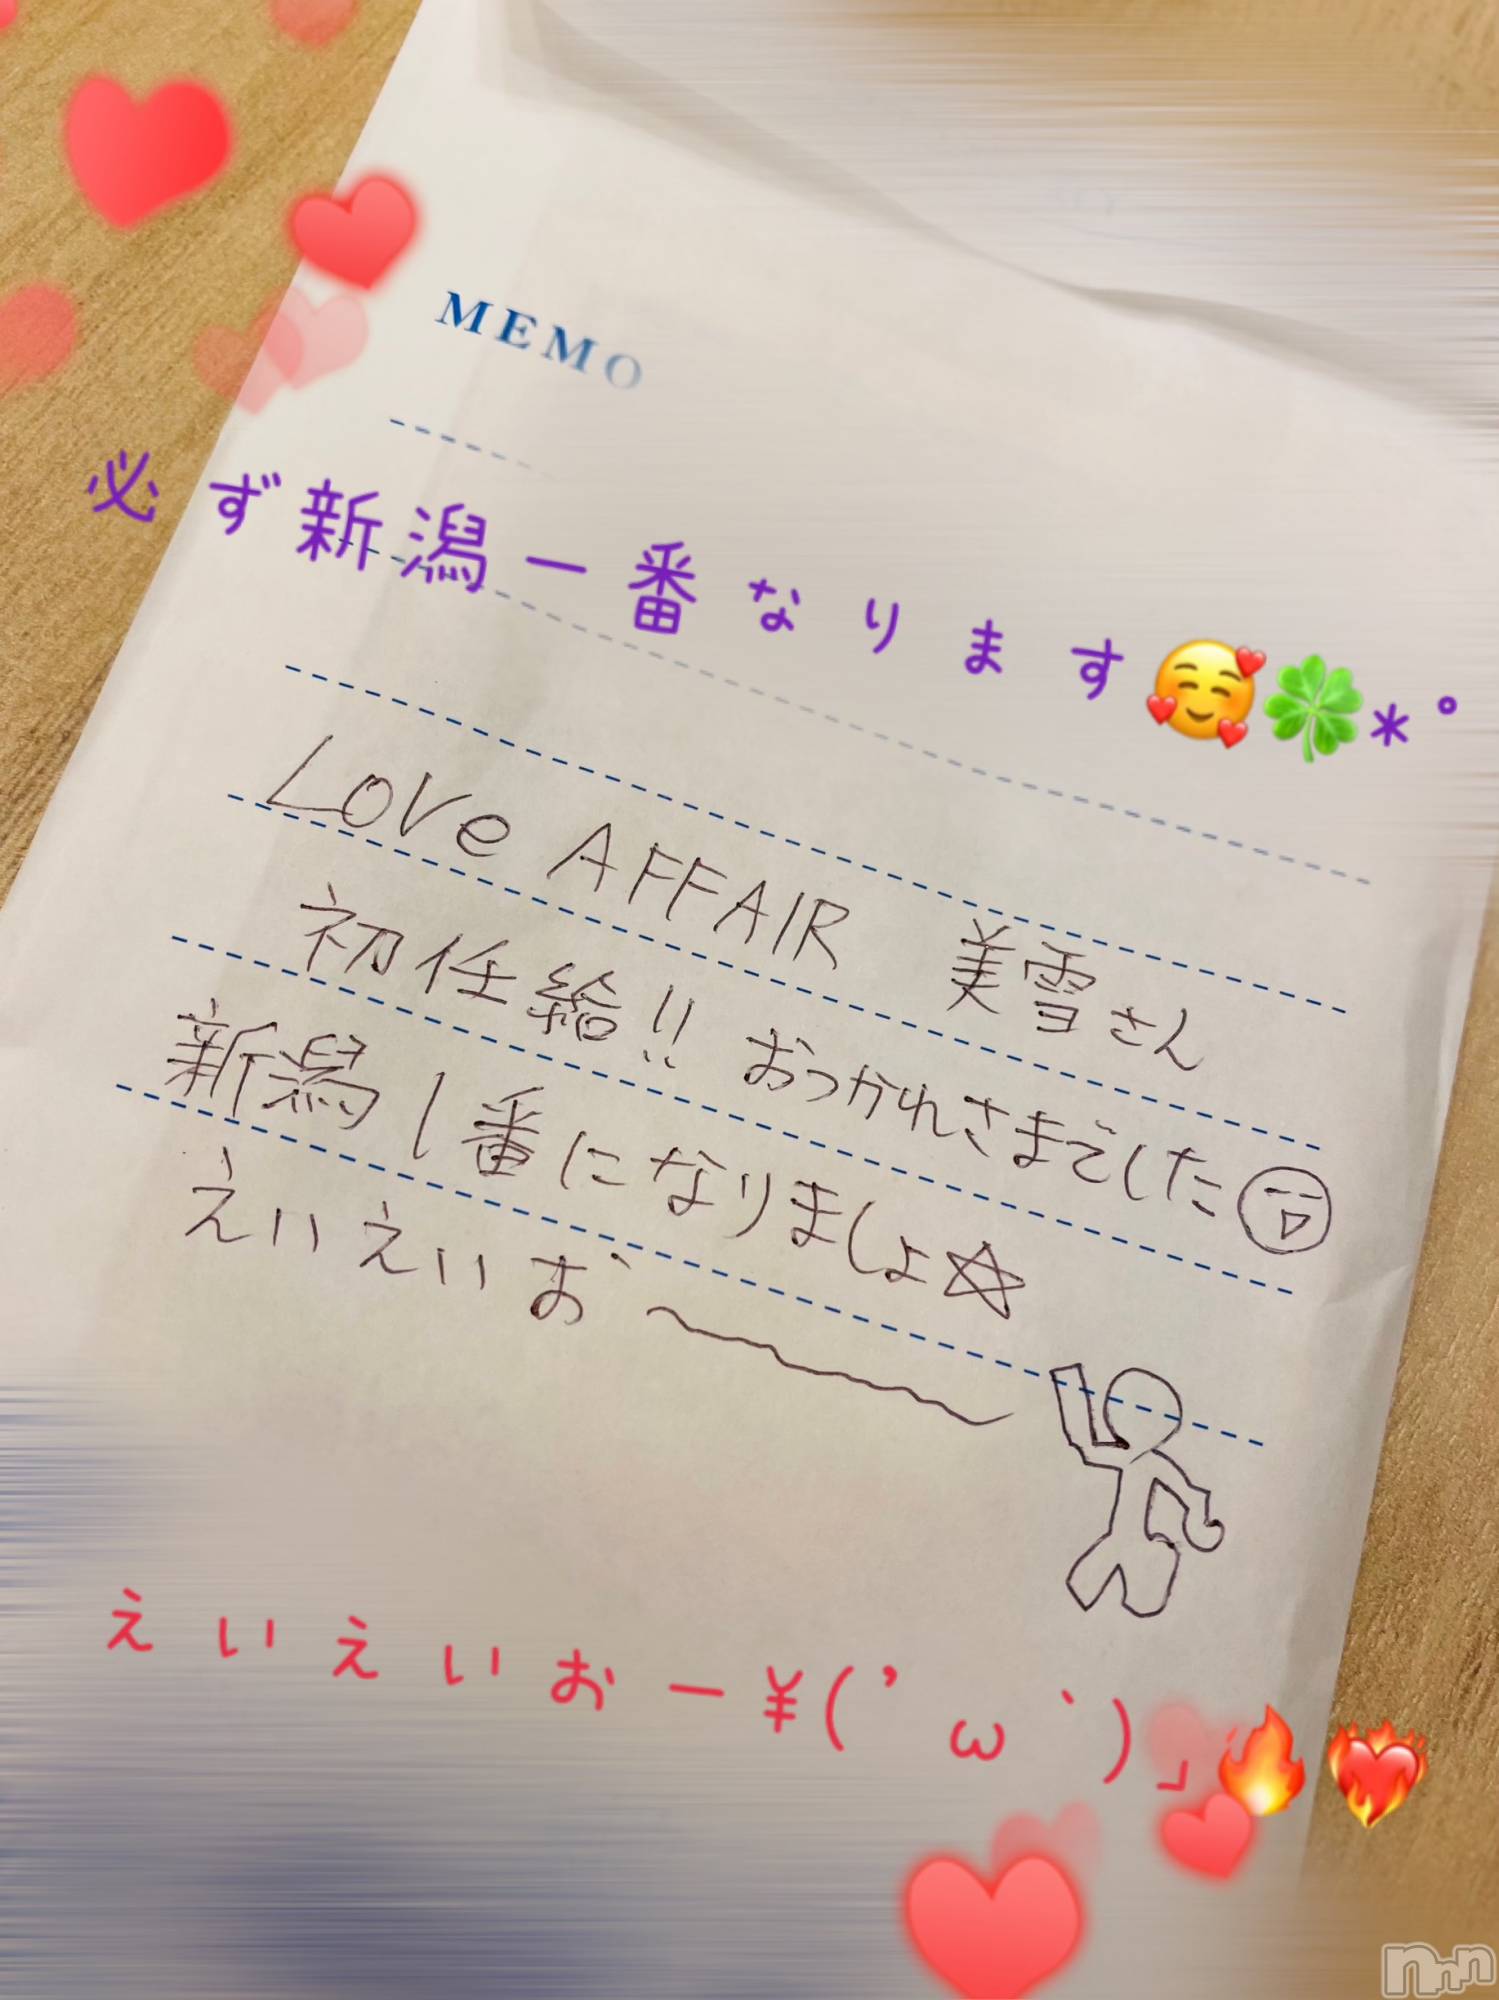 MEMO
必ず新潟一番なります🥰🍀*゜
Love AFFAIR 美雪さん
初任給!! おつかれさまでした
新潟1番になりましょ☆
えいえいお〜
えいえいおー¥( ’ω` )」🔥❤️‍🔥
nnn